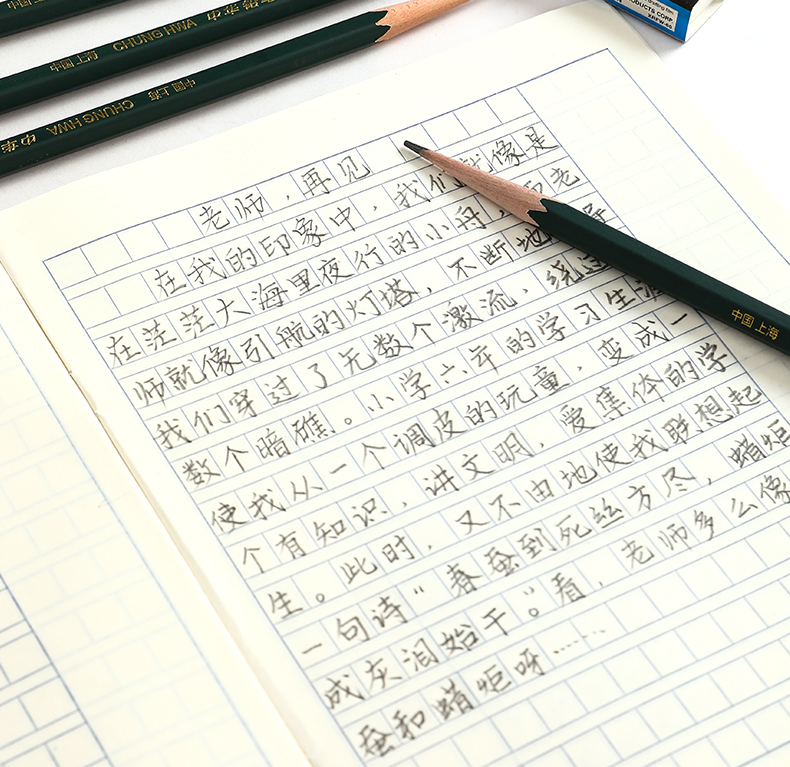 中华
CHUNG HWA 中国上海
中华 CHUNG HWA 中国上海
ODUCTS CORP.
老师，再见
在我的印象中，我们就像是
在茫茫大海里夜行的小舟，老
师就像引航的灯塔，不断地
我们穿过了无数个激流，绕过
数个暗礁。小学六年的学习生涯
使我从一个调皮的玩童，变成一
个有知识，讲文明，爱集体的学
生。此时，又不由地使我联想起
一句诗“春蚕到死丝方尽，蜡炬
成灰泪始干”。看，老师多么像
蚕和蜡炬呀……
中国上海